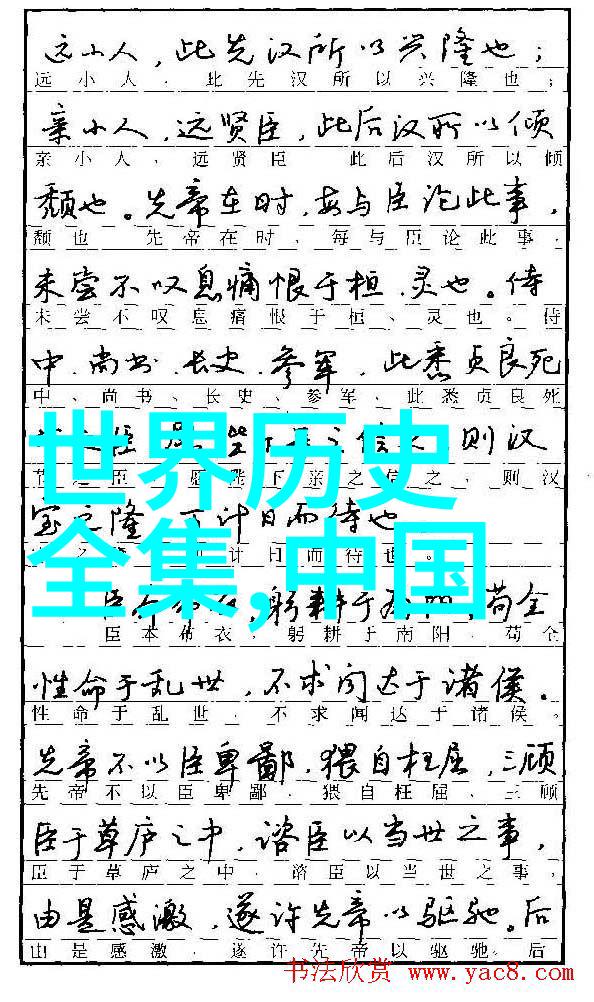 远小人，此先汉所以兴隆也；
远小人，此先汉所以兴隆也；
亲小人，远贤臣，此后汉所以倾
亲小人，远贤臣 此后汉所以倾
颓也。先帝在时，每与臣论此事，
颓也 先帝在时，每与臣论此事，
未尝不叹息痛恨于桓、灵也。侍
未尝不叹息痛恨于桓、灵也。侍
中、尚书、长史、参军，此悉贞良死
中、尚书、长史、参军，此悉贞良死
世界历史
全集,中国
之臣 则汉
之臣，愿陛下亲之信之，则汉
室之隆，可计日而待也
计日而待也。
臣本布衣，躬耕于南阳，苟全
臣本布衣，躬耕于南阳，苟全
性命于乱世，不求闻达于诸侯。
性命于乱世，不求闻达于诸侯。
先帝不以臣卑鄙，猥自枉屈，三顾
先帝不以臣卑鄙，猥自枉屈、三顾
臣于草庐之中，谘臣以当世之事，
臣于草庐之中，谘臣以当世之事，
由是感激，遂许先帝以驱驰。后
由是感激，遂许先帝以驱驰。后
书法欣赏 www.yac8.com